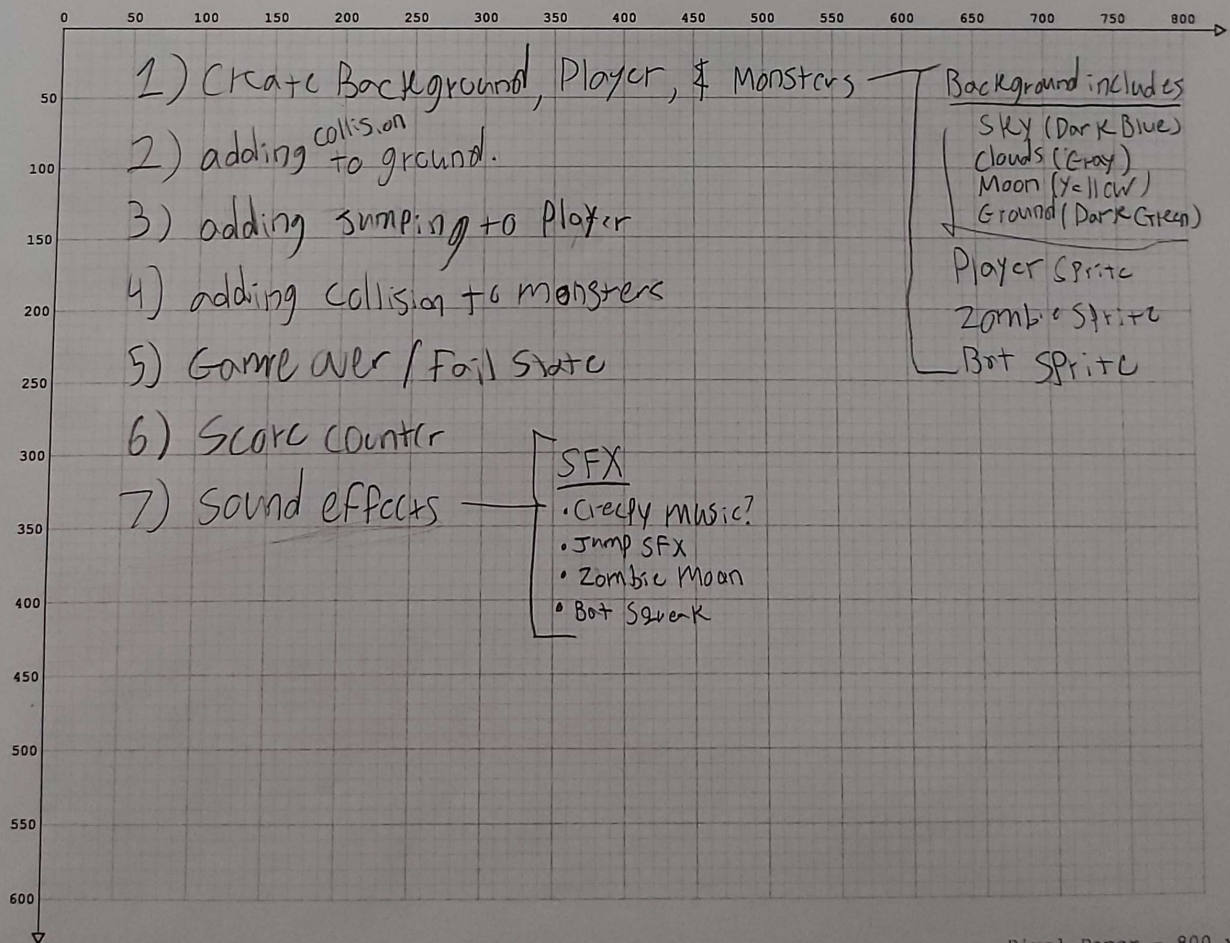 0 50 100 150 200 250 300 350 400 450 500 550 600 650 700 750 800
50
100
150
200
250
300
350
400
450
500
550
600
1) Create Background, Player, & Monsters
2) adding collision to ground.
3) adding jumping to Player
4) adding collision to monsters
5) Game over / Fail State
6) Score counter
7) Sound effects
Background includes
Sky (Dark Blue)
Clouds (Gray)
Moon (Yellow)
Ground (Dark Green)
Player Sprite
Zombie Sprite
Bat Sprite
SFX
• Creepy music?
• Jump SFX
• Zombie Moan
• Bat Squeak